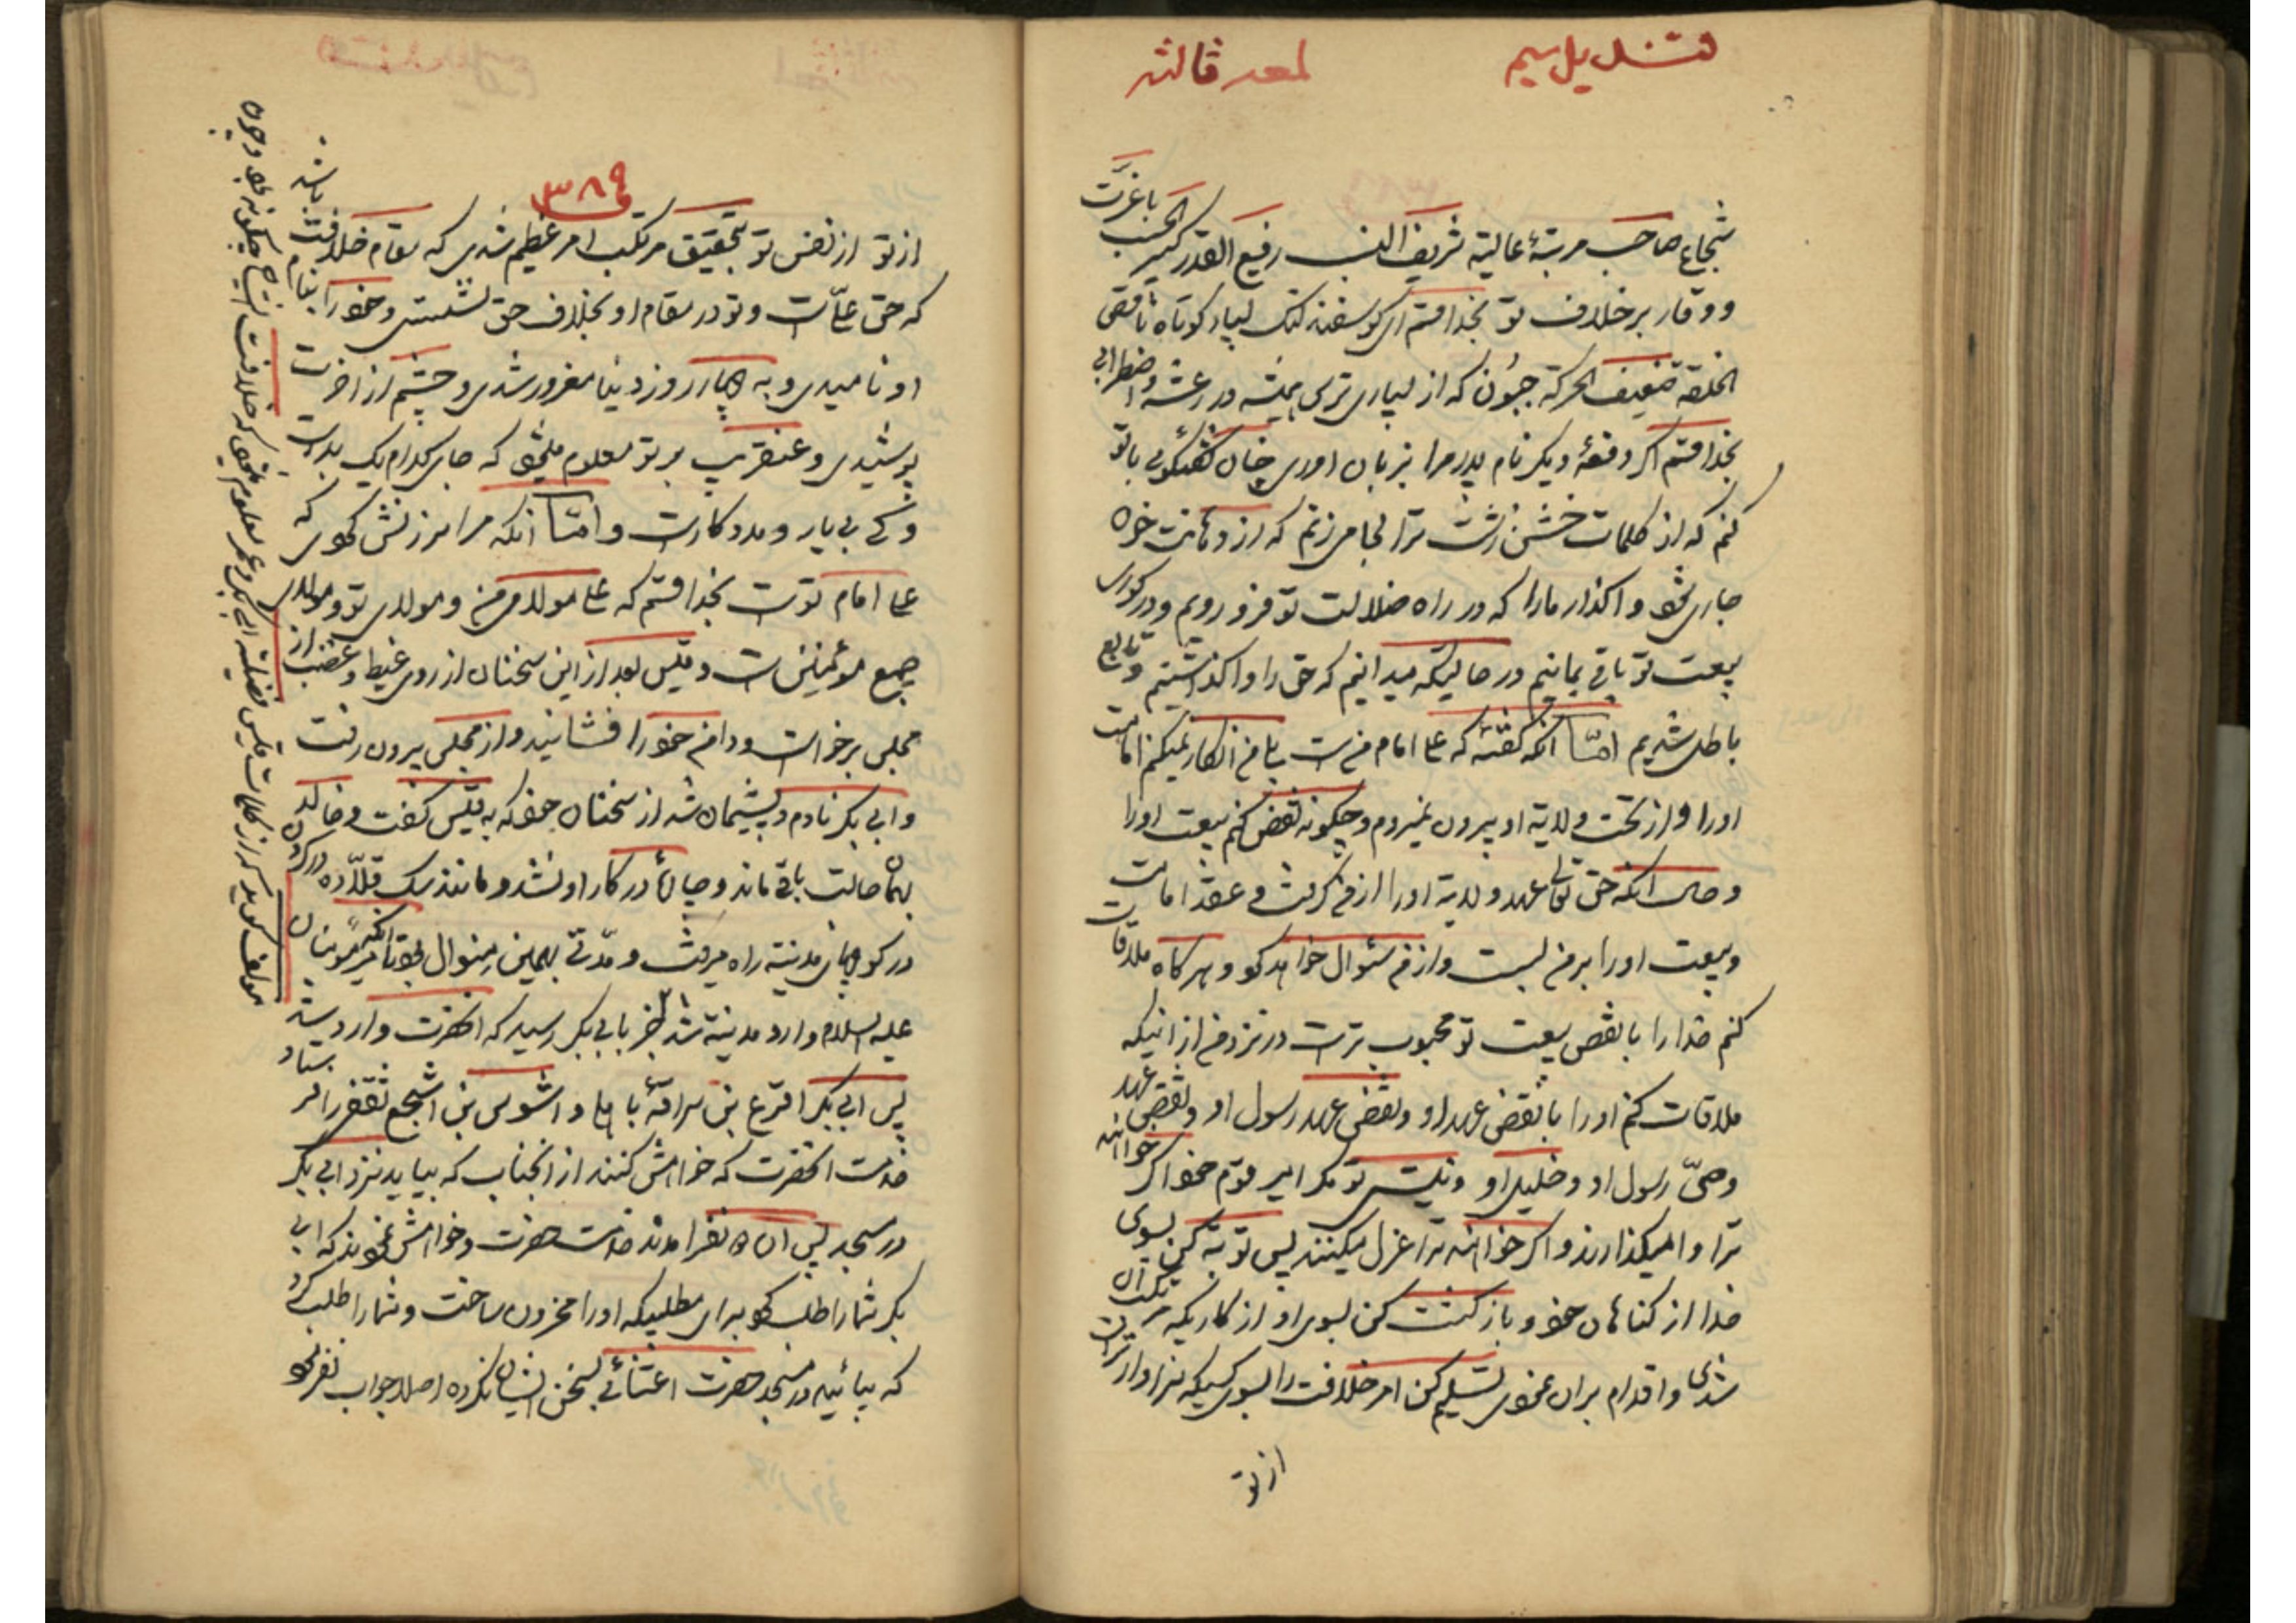 قندیل سیم
لمعه ثالثه
شجاع صاحب مرتبهٔ عالیة شریف النسب رفیع القدر کبیر الحسب باعزّت
و وقار برخلاف تو بخدا قسم ای کوسفند لنک بسیار کوتاه ناقص
الخلقه ضعیف الحرکة جبون که از بسیاری ترس همیشه در رعشه و اضطرابی
بخدا قسم اکر دفعهٔ دیکر نام پدر مرا بزبان اوری چنان کفتکوئی با تو
کنم که از کلمات خشن زشت ترا لجام زنم که از دهانت خون
جاری شود واکذار مارا که در راه ضلالت تو فرو رویم و در کوری
بیعت تو باقی بمانیم در حالیکه میدانیم که حق را واکذاشتیم و تابع
باطل شدیم امّا آنکه کفتهٔ که علی امام من است بلی من انکار نمیکنم امامت
اورا و از تحت ولایة او بیرون نمیروم و چکونه نقض کنم بیعت اورا
و حال آنکه حق تعالی عهد ولایة اورا از من کرفت و عقد امامت
و بیعت اورا بر من بست و از من سئوال خواهد کرد و هر کاه ملاقات
کنم خدا را با نقض بیعت تو محبوب تر است در نزد من از اینکه
ملاقات کنم اورا با نقض عهد او و نقض عهد رسول او و نقض عهد
وصیّ رسول او و خلیل او و نیستی تو مکر امیر قوم خود اکر خواهند
ترا وامیکذارند و اکر خواهند ترا عزل میکنند پس توبه کن بسوی
خدا از کناهان خود و بازکشت کن بسوی او از کاریکه مرتکب آن
شدی و اقدام بران نمودی تسلیم کن امر خلافت را بسوی کسیکه سزاوارتر است
از تو
۳۸۹
از تو از نفس تو بتحقیق مرتکب امر عظیم شدی که مقام خلافت باشد
که حق علی است و تو در مقام او بخلاف حق نشستی و خود را بنام
او نامیدی و به روز دنیا مغرور شدی و چشم از اخرت
پوشیدی و عنقریب بر تو معلوم میشود که جای کدام یک بدتر است
و کی بی یار و مددکار است و امّا آنکه مرا سرزنش کردی که
علی امام تو است بخدا قسم که علی مولای من و مولای تو و مولای
جمیع مؤمنین است و قیس بعد از این سخنان از روی غیظ و غضب از
مجلس برخواست و دامن خود را افشانید و از مجلس بیرون رفت
و ابی بکر نادم و پشیمان شد از سخنان خود که به قیس کفت و خالد
بهمان حالت باقی ماند و در کار او نشد و مانند سک قلّاده در کردن
در کوچهای مدینة راه میرفت و مدّتی بهمین منوال بود تا امیر مؤمنان
علیه السلام وارد مدینة شد خبر بابی بکر رسید که آنحضرت وارد شد
پس ابی بکر اقرع بن سراقهٔ باهلی و اشوس بن اشجع ثقفی را فرستاد
خدمت انحضرت که خواهش کنند از انجناب که بیاید نزد ابی بکر
در مسجد پس ان دو نفر امدند خدمت حضرت و خواهش نمودند که ابی
بکر شمارا طلب نمود برای مطلبیکه اورا محزون ساخت و شمارا طلب کرد
که بیائید در مسجد حضرت اعتنائی بسخن ایشان نکرده اصلا جواب نفرمود
مولف کوید که از کلمات قیس فضیلت ابی بکر و عمر معلوم میشود که خلافت ایشان چکونه بود و چون